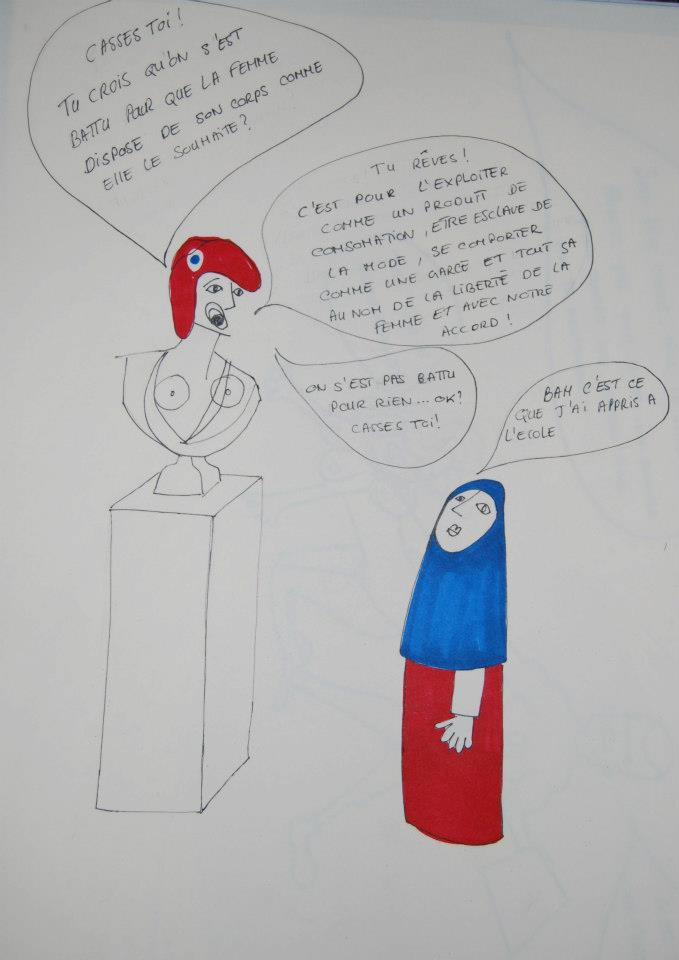 CASSES TOI !
TU CROIS QU'ON S'EST
BATTU POUR QUE LA FEMME
DISPOSE DE SON CORPS COMME
ELLE LE SOUHAITE ?
TU RÊVES !
C'EST POUR L'EXPLOITER
COMME UN PRODUIT DE
COMSOMATION, ETRE ESCLAVE DE
LA MODE, SE COMPORTER
COMME UNE GARCE ET TOUT SA
AU NOM DE LA LIBERTÉ DE LA
FEMME ET AVEC NOTRE
ACCORD !
ON S'EST PAS BATTU
POUR RIEN... OK?
CASSES TOI !
BAH C'EST CE
QUE J'AI APPRIS A
L'ECOLE